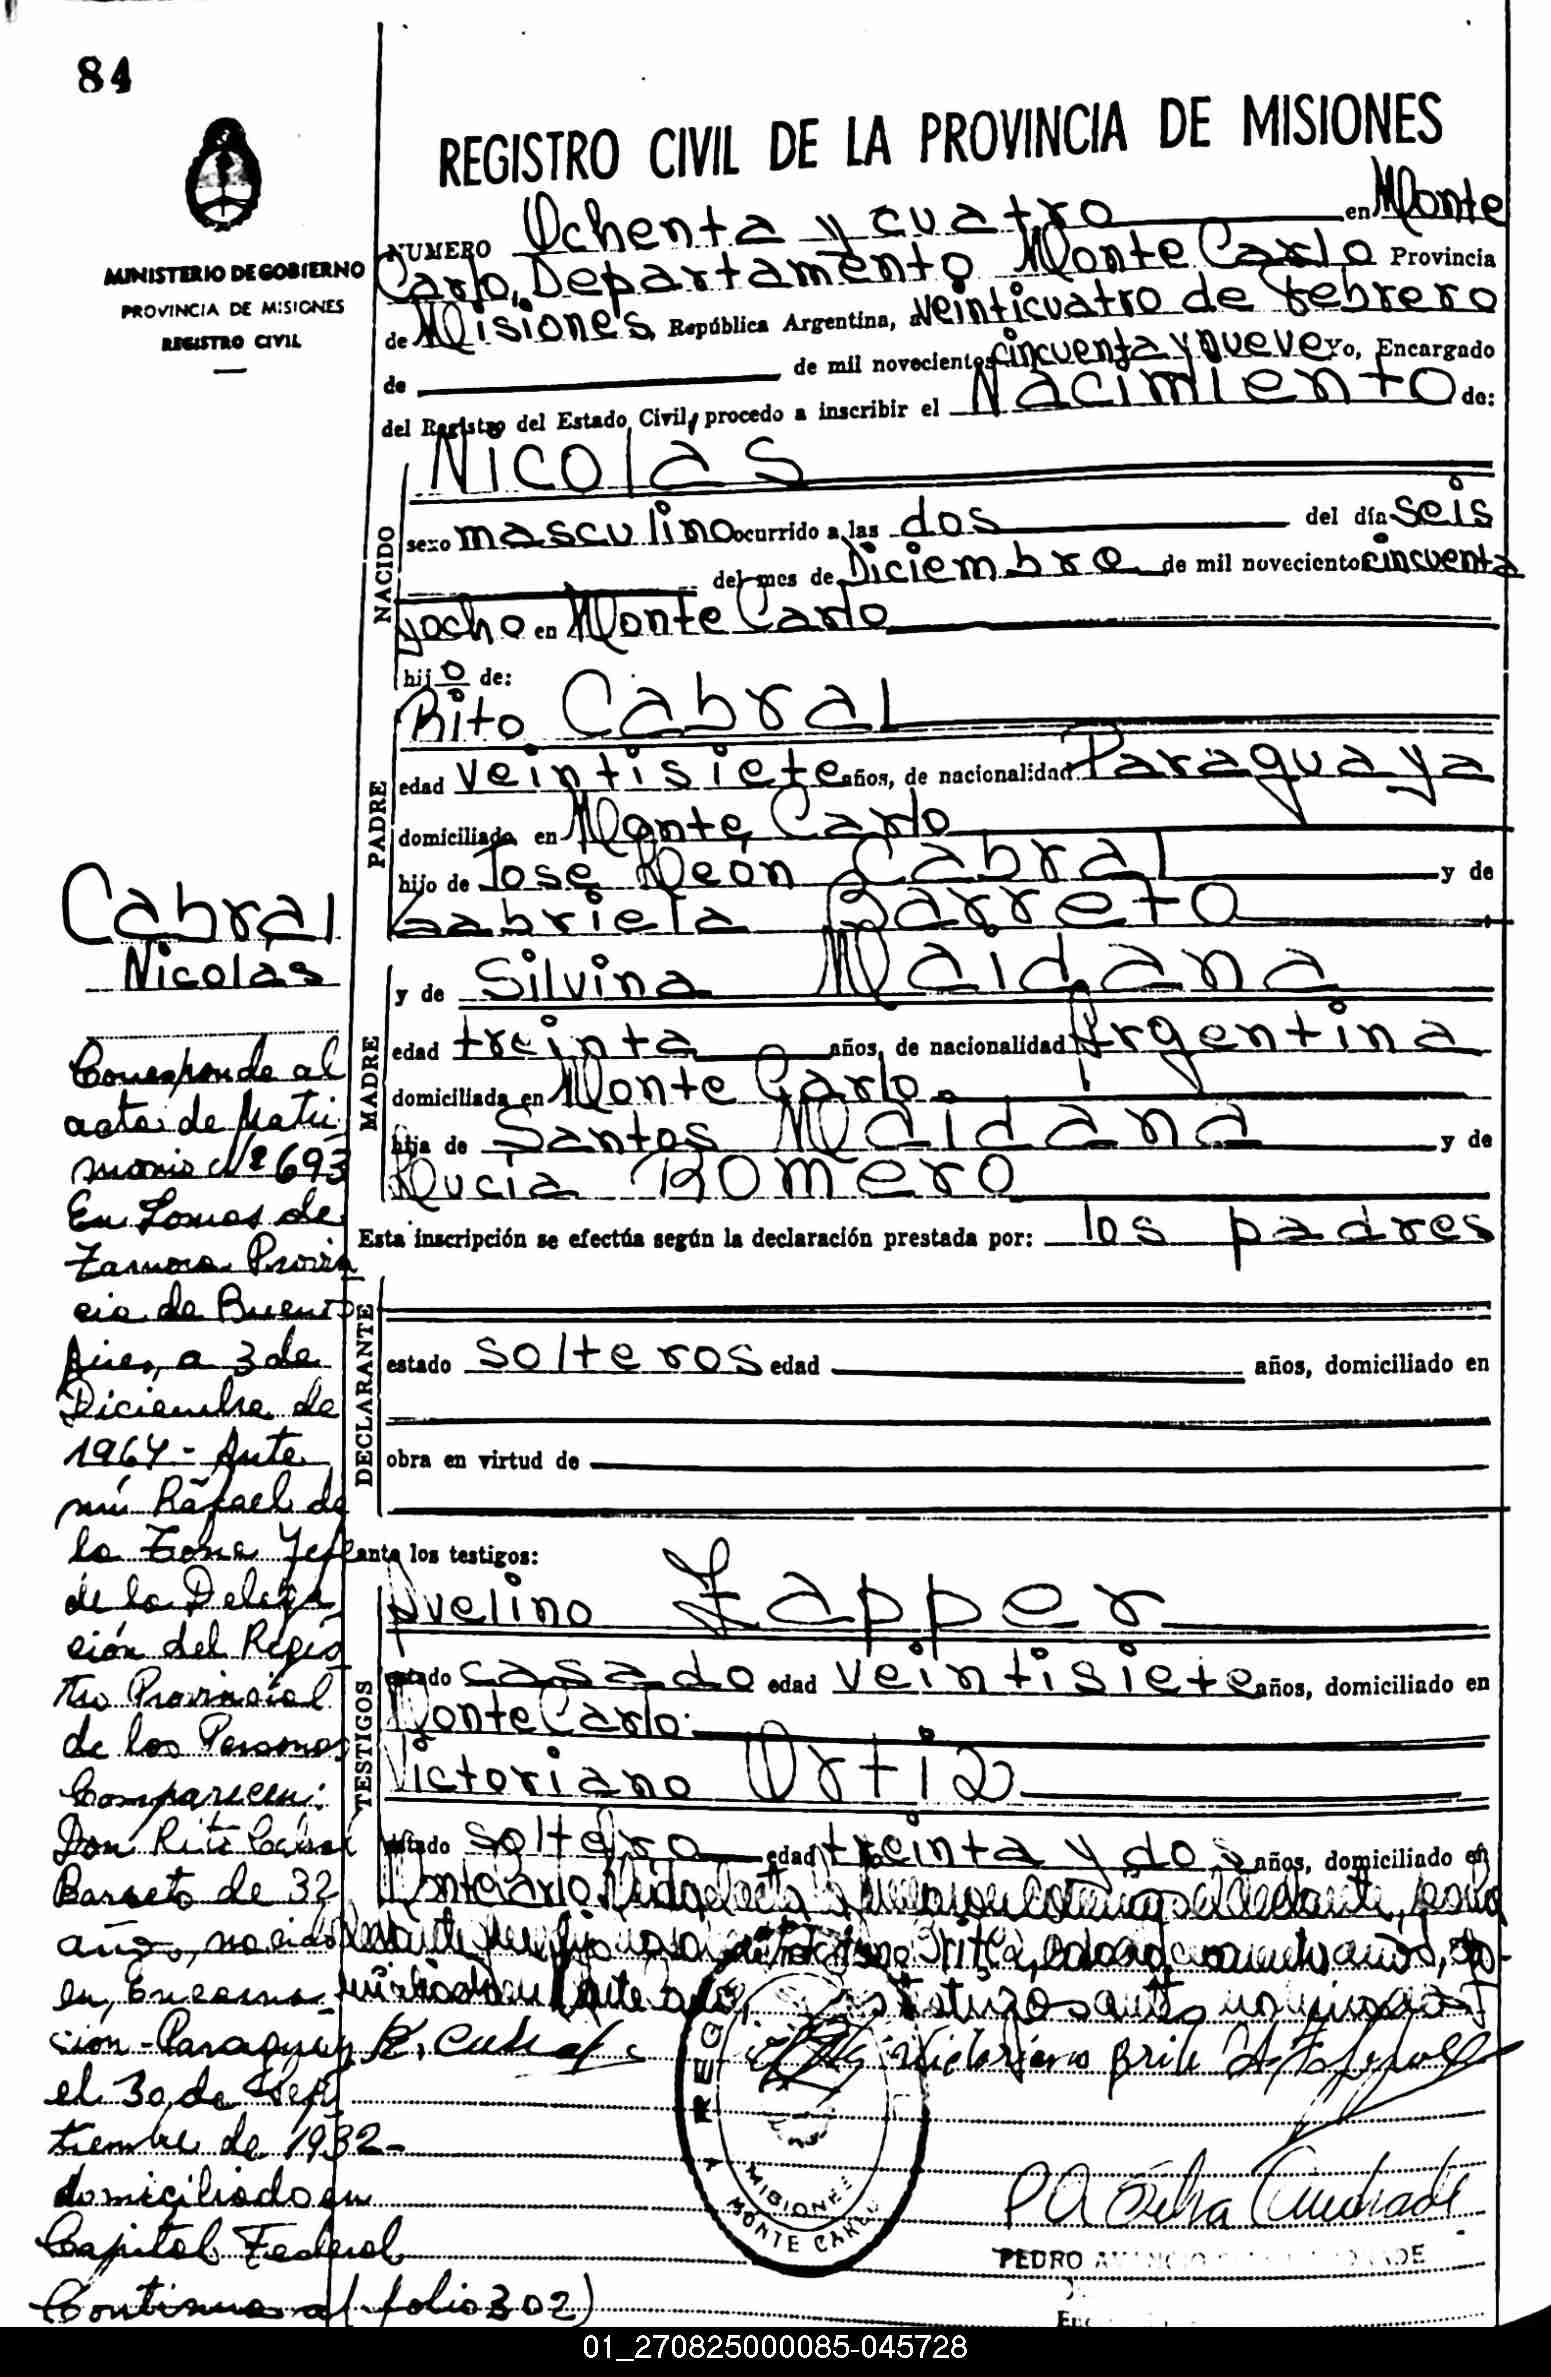 84
REGISTRO CIVIL DE LA PROVINCIA DE MISIONES
MINISTERIO DE GOBIERNO
PROVINCIA DE MISIONES
REGISTRO CIVIL
NUMERO Ochenta y cuatro en Monte
Carlo, Departamento Monte Carlo Provincia
de Misiones, República Argentina, a veinticuatro de febrero
de de mil novecientos cincuenta y nueve Yo, Encargado
del Registro del Estado Civil, procedo a inscribir el Nacimiento de:
NACIDO
Nicolás
sexo masculino ocurrido a las dos del día seis
del mes de Diciembre de mil novecientos cincuenta
y ocho en Monte Carlo
hijo de:
PADRE
Rito Cabral
edad veintisiete años, de nacionalidad Paraguaya
domiciliado en Monte Carlo
hijo de José León Cabral y de
Gabriela Barreto
MADRE
y de Silvina Maidana
edad treinta años, de nacionalidad Argentina
domiciliada en Monte Carlo
hija de Santos Maidana y de
Lucía Romero
Esta inscripción se efectúa según la declaración prestada por: los padres
DECLARANTE
estado solteros edad años, domiciliado en
obra en virtud de
ante los testigos:
TESTIGOS
Avelino Zapper
estado casado edad veintisiete años, domiciliado en
Monte Carlo.
Victoriano Ortiz
estado soltero edad treinta y dos años, domiciliado en
Monte Carlo
testigos antes
R. Cabral
Victoriano
PEDRO
REG
MISIONES
MONTE CARLO
Cabral
Nicolás
Corresponde al
acta de Matri
monio Nº 693
En Lomas de
Zamora Provin
cia de Buenos
Aires, a 3 de
Diciembre de
1964 - Ante
mí Rafael de
la Jefe
de la Delega
ción del Regis
tro Provincial
de las Personas
Comparecen:
Don Rito Cabral
Barreto de 32
años, nacido
en, Encarna
ción - Paraguay
el 30 de Sep
tiembre de 1932 -
domiciliado en
Capital Federal
Continua al folio 302)
01_270825000085-045728